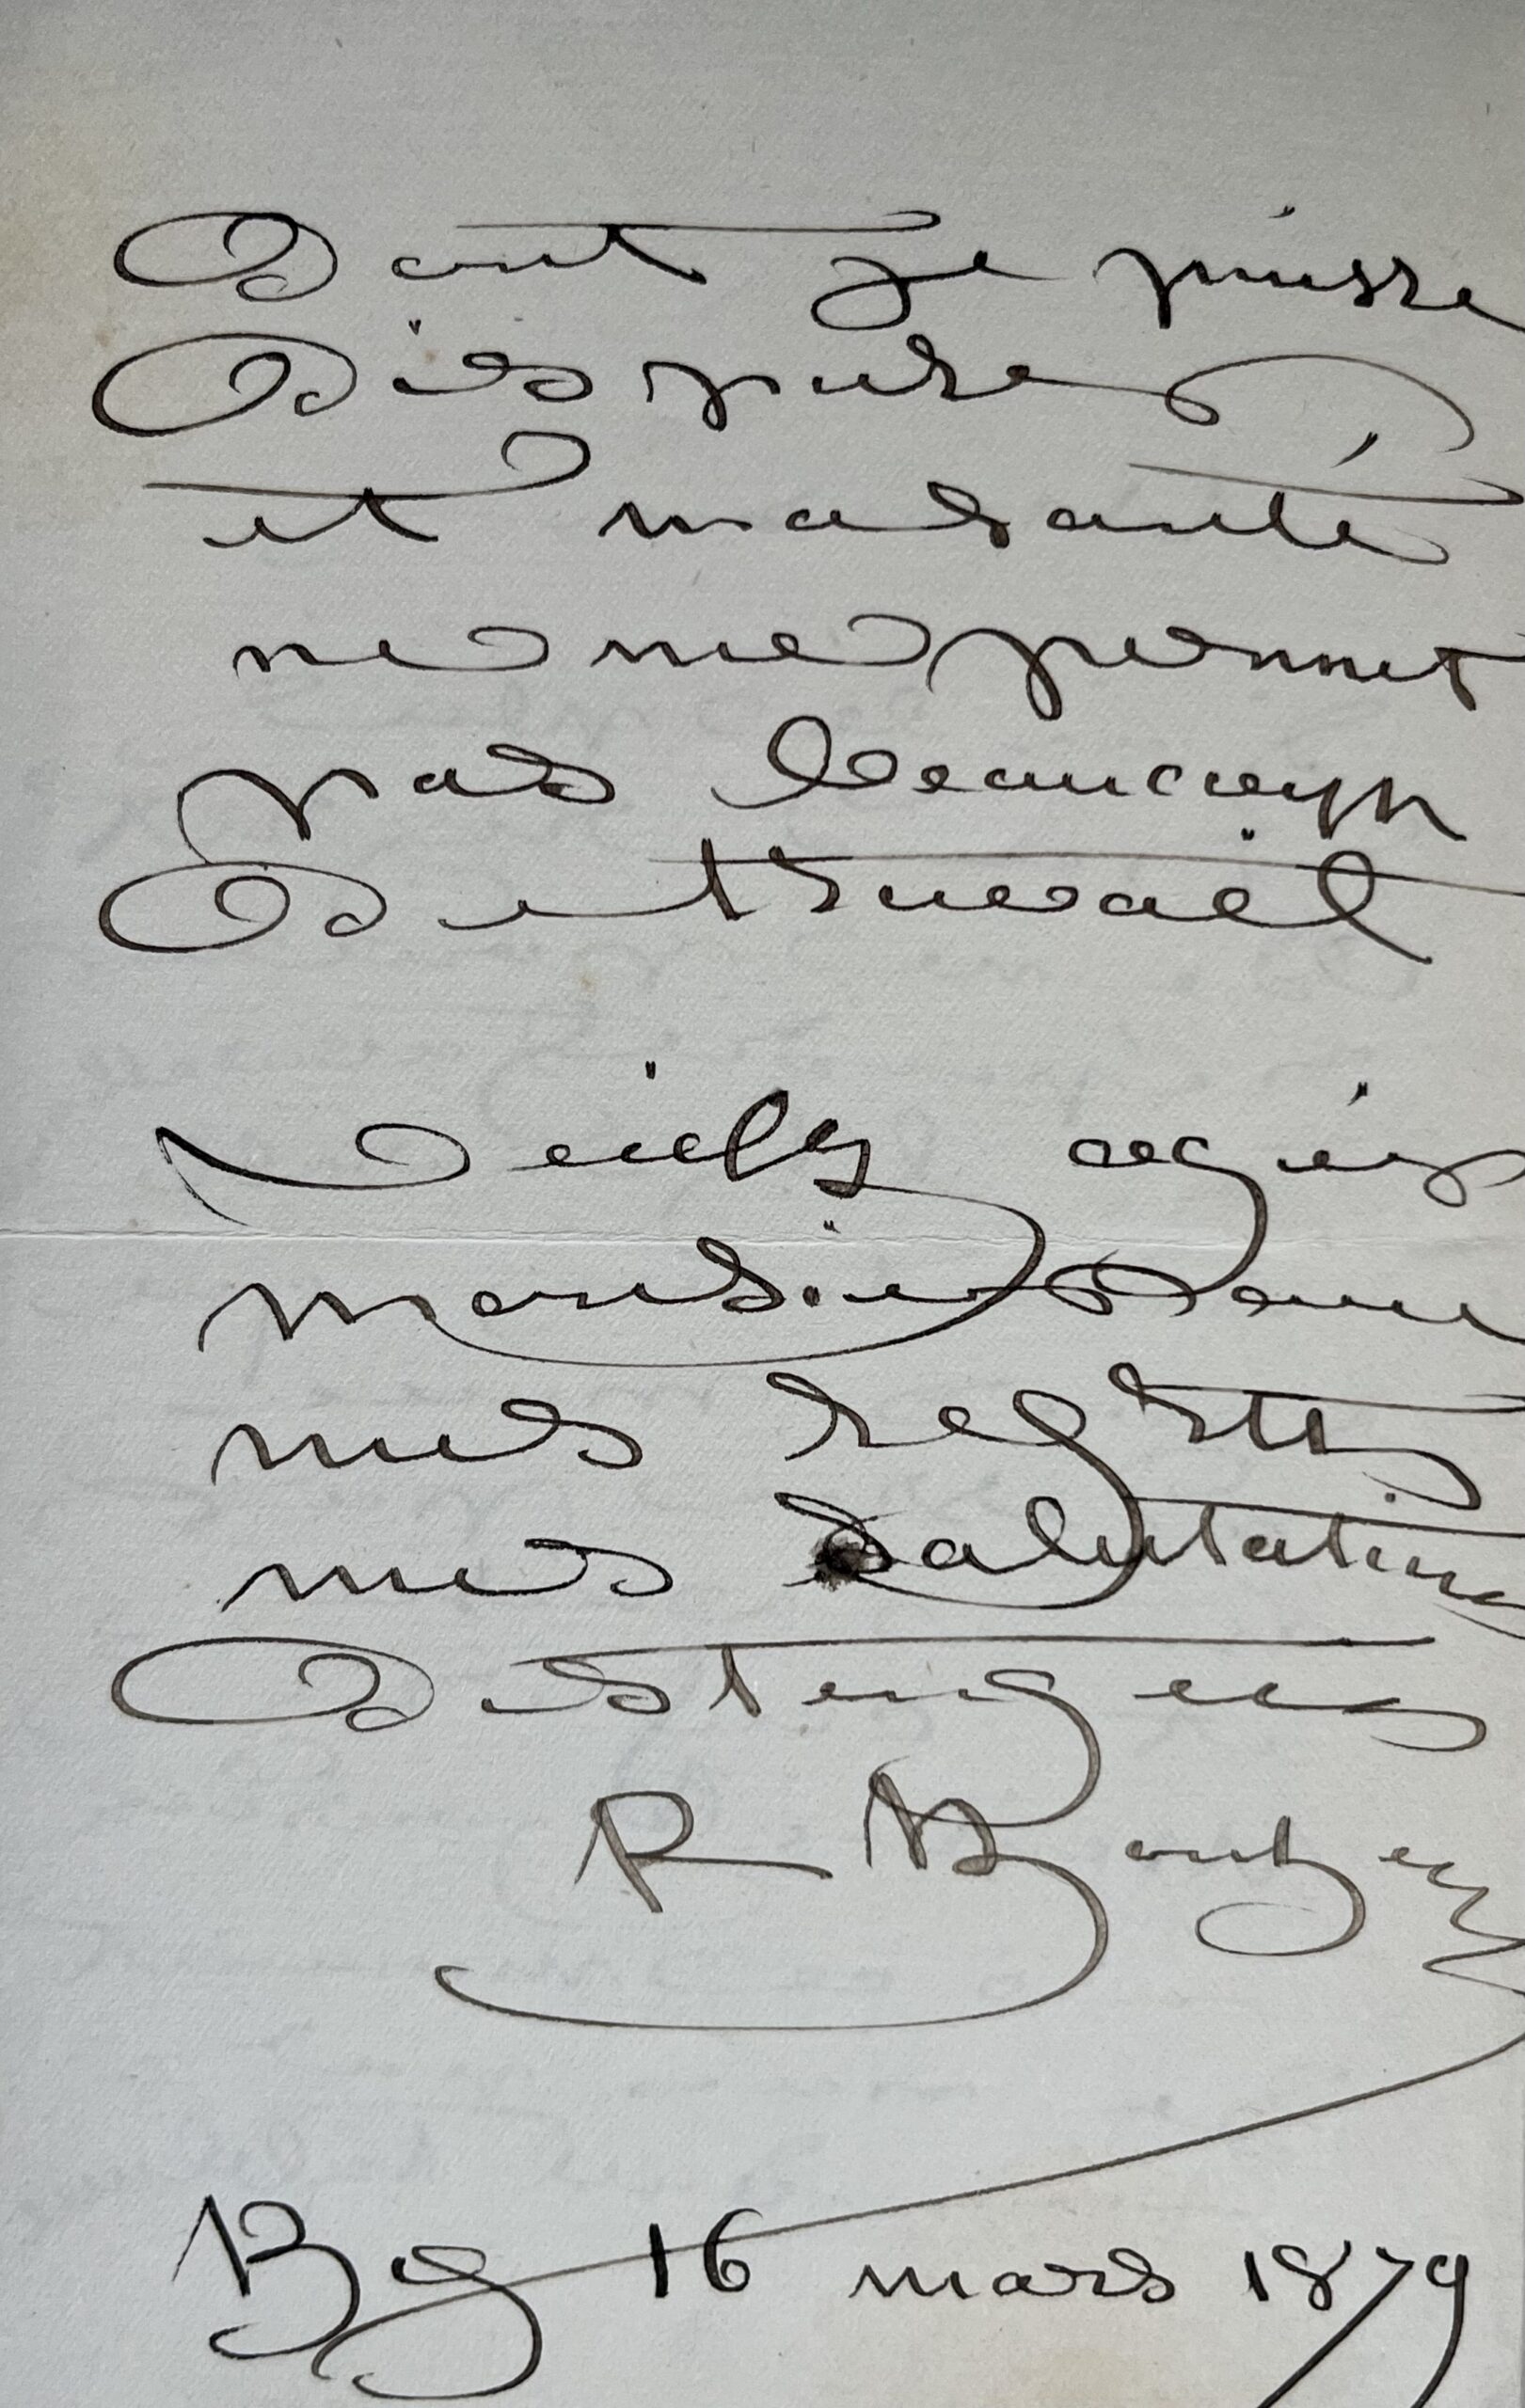 dont je puisse
disposer
et ma santé
ne me permet
pas beaucoup
de travail
Veuillez agréer
monsieur avec
mes regrets
mes salutations
distinguées
R
16 mars 1879